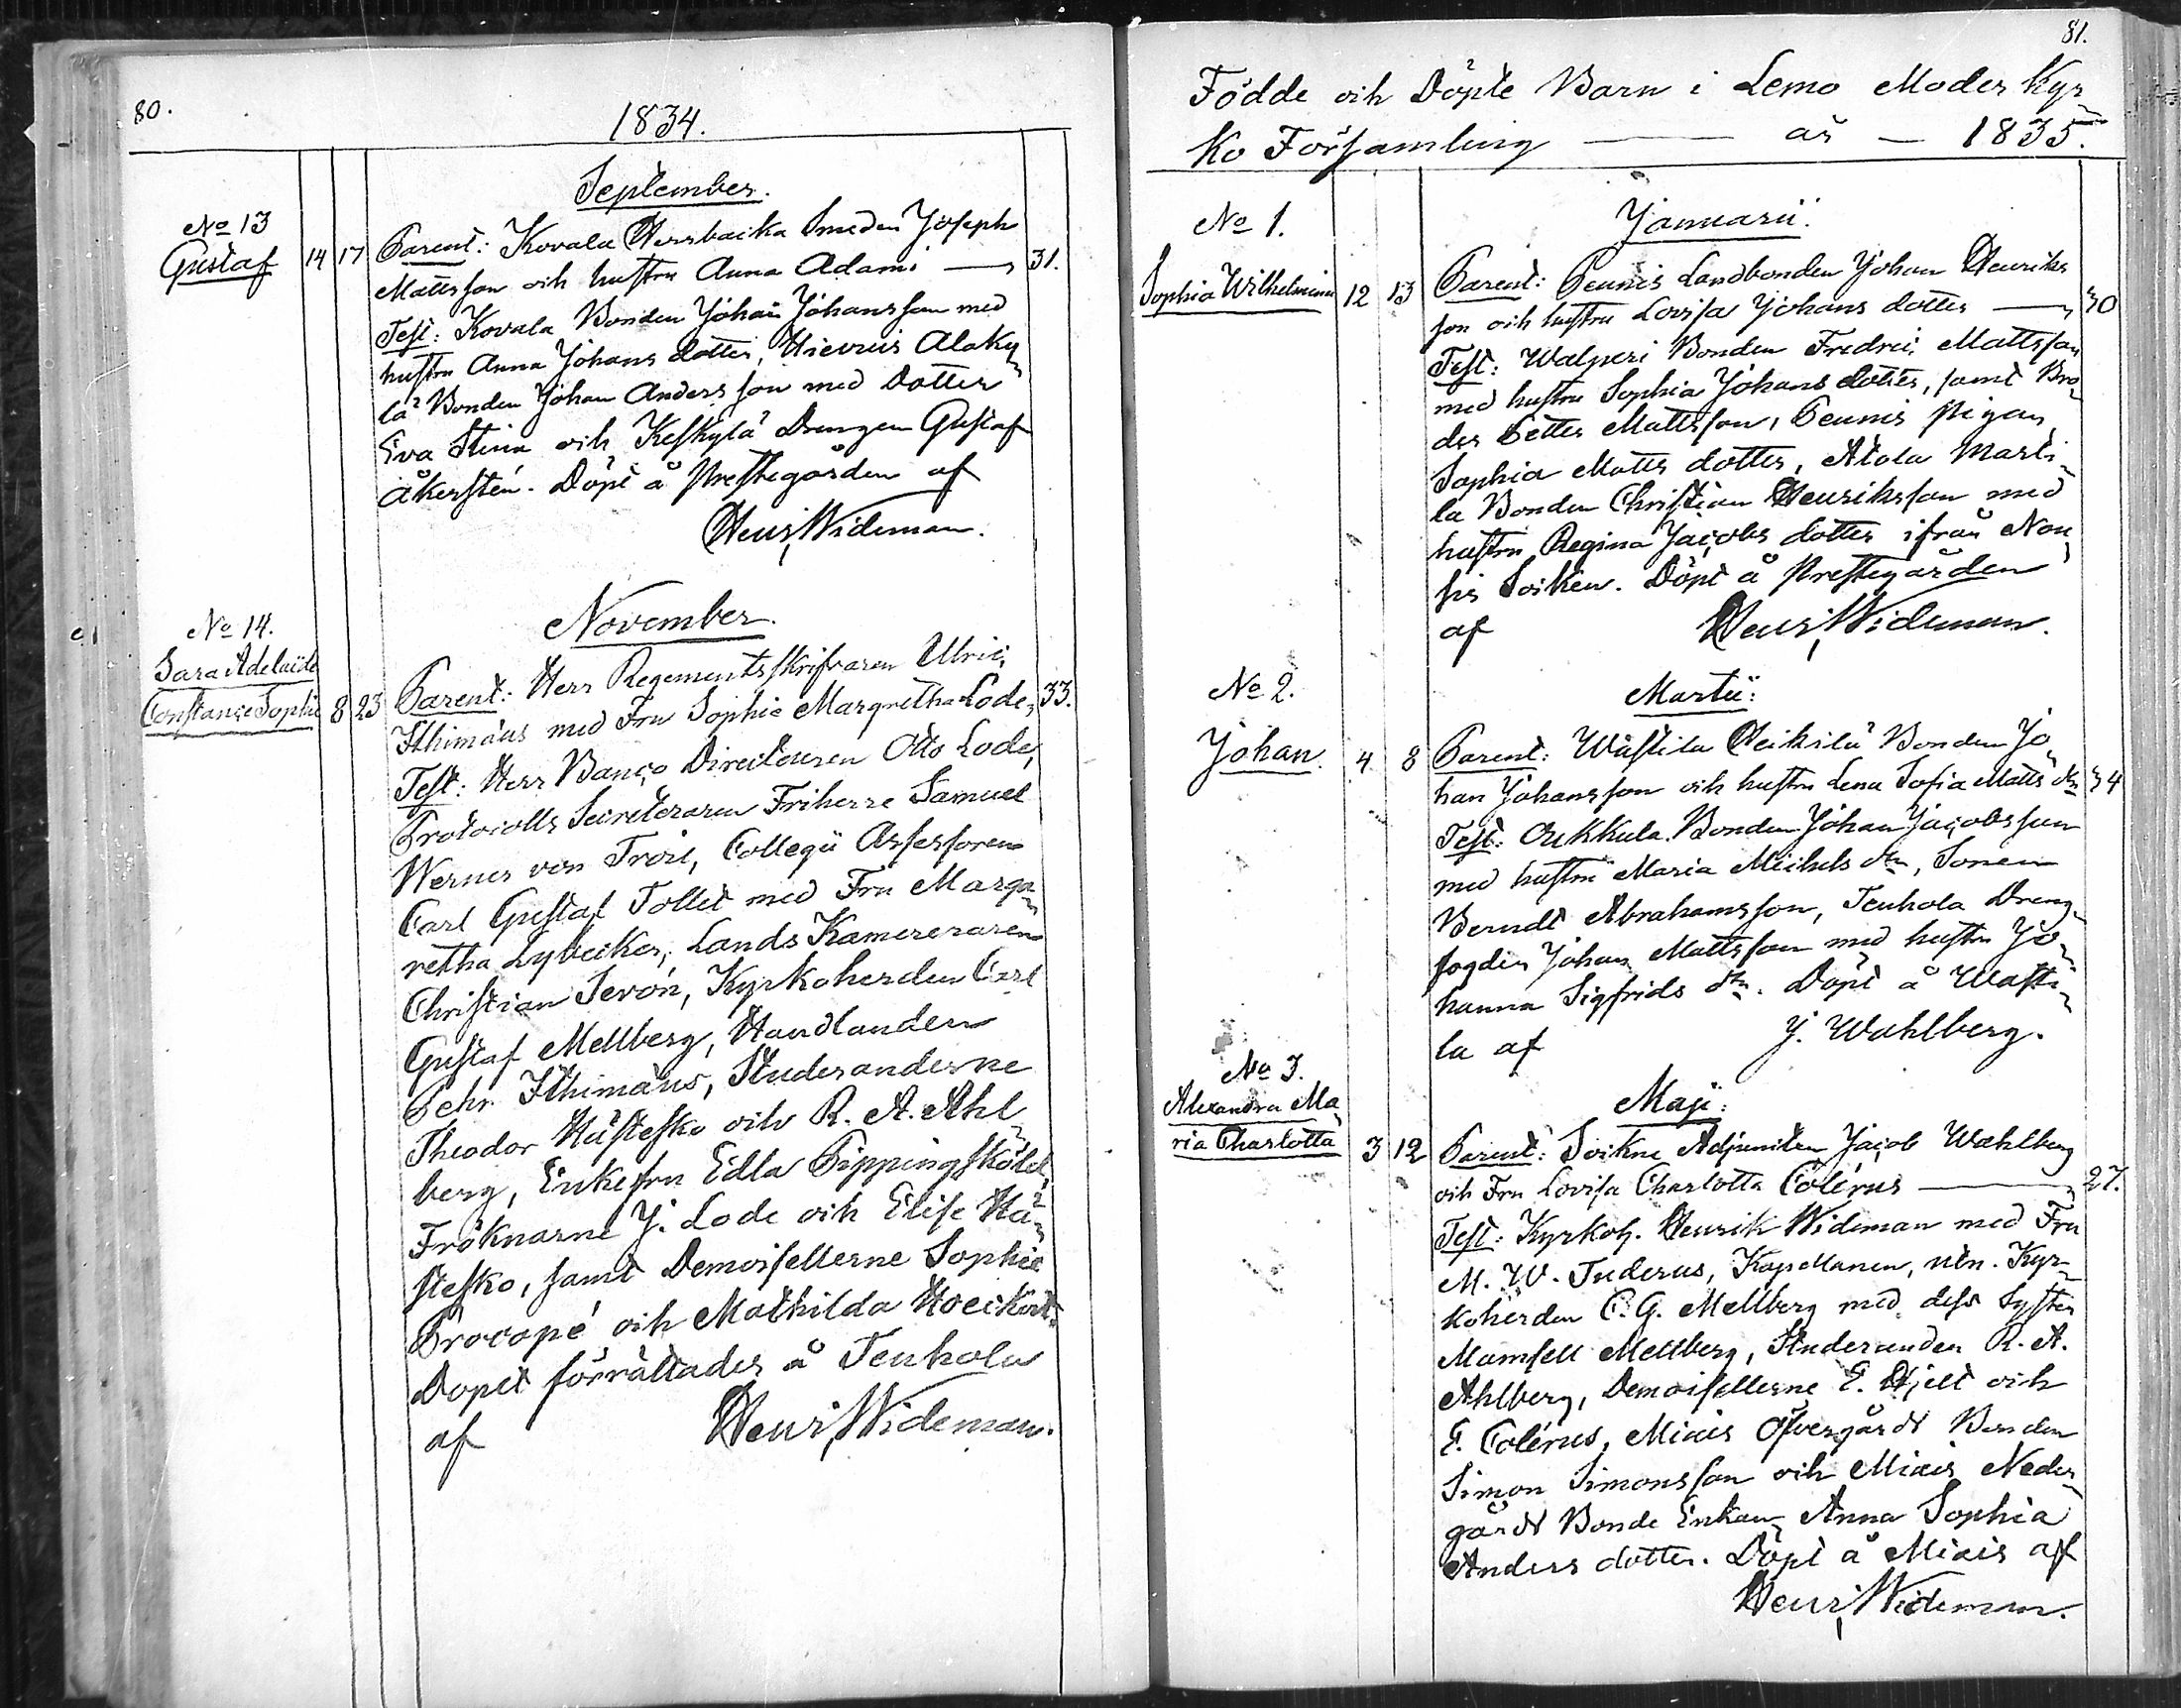 80.
1834.
September.
No 13
Gustaf 14 17 Parent: Kovala Herrbacka Smeden Joseph
Mattsson och hustru Anna Adami — 31.
Test: Kovala Bonden Johan Johansson med
hustru Anna Johans dotter, Alaky
lä Bonden Johan Andersson med Dotter
Eva Stina och Keskylä Drengen Gustaf
Åkerstén. Döpt å Prestegården af
Henr. Wideman.
November.
No 14.
Sara Adelaide
Constance Sophie 8 23 Parent: Herr Regementsskrifvaren Ulric
Ithimæus med Fru Sophie Margretha Lode, 33.
Test: Herr Banco Directeuren Otto Lode,
Protocolls Secreteraren Friherre Samuel
Werner von Troil, Collegii Assessoren
Carl Gustaf Tollet med Fru Marga
retha Lybecker, Lands Kamereraren
Christian Terón, Kyrkoherden Carl
Gustaf Mellberg, Handlanden
Pehr Ithimæus, Studeranderne
Theodor Hästesko och R. A. Ahl
berg, Enkefru Edla Pippingsköld,
Fröknarne J. Lode och Elise Hä
stesko, samt Demoisellerne Sophie
Procopé och Mathilda Hoeckert.
Dopet förrättades å Tenhola
af Henr. Wideman.
81.
Födde och Döpte Barn i Lemo Moder Kyr
ko Församling — år — 1835.
Januarii.
No 1.
Sophia Wilhelmina 12 13 Parent: Peunis Landbonden Johan Henriks
son och hustru Lovisa Johans dotter — 30
Test: Walperi Bonden Fredric Mattsson
med hustru Sophia Johans dotter, samt Bro
der Petter Mattsson, Peunis pigan
Sophia Matts dotter, Atola Marti
la Bonden Christian Henriksson med
hustru Regina Jacobs dotter ifrån Nou
sis Socken. Döpt å Prestegården
af Henr. Wideman.
Martii:
No 2.
Johan. 4 8 Parent: Wästila Heikilä Bonden Jo
han Johansson och hustru Lena Sofia Matts dr 34
Test: Cukkula Bonden Johan Jacobsson
med hustru Maria Michels dr, Sonen
Berndt Abrahamsson, Tenhola Dreng
fogden Johan Mattsson med hustru Jo
hanna Sigfrids dr. Döpt å Wästi
la af J. Wahlberg.
Maji:
No 3.
Alexandra Ma
ria Charlotta 3 12 Parent: Sockne Adjuncten Jacob Wahlberg
och Fru Lovisa Charlotta Colérus — 27.
Test: Kyrkoh. Henrik Wideman med Fru
M. W. Tuderus, Kapellanen, utn. Kyr
koherden C. G. Mellberg med dess Syster
Mamsell Mellberg, Studeranden R. A.
Ahlberg, Demoisellerne E. Hjelt och
E. Colérus, Miais Öfvergårds Bonden
Simon Simonsson och Miais Neder
gårds Bonde Enkan Anna Sophia
Anders dotter. Döpt å Miais af
Henr. Wideman.